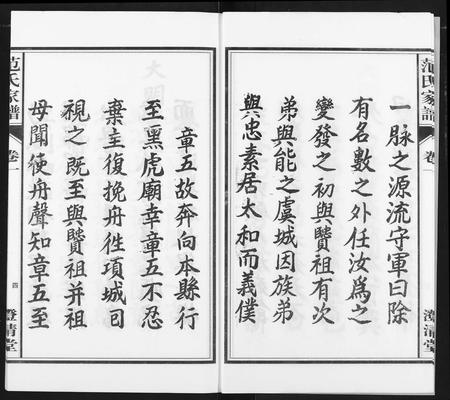 范氏家譜
卷一
澄清堂
一脉之源流守軍曰除
有名數之外任汝爲之
變發之初與贒祖有次
弟與能之虞城因族弟
與忠素居太和而義僕
章五故奔向本縣行
至黑虎廟幸章五不忍
棄主復挽舟徃項城司
視之既至與贒祖并祖
母聞使舟聲知章五至
范氏家譜
卷一
四
澄清堂